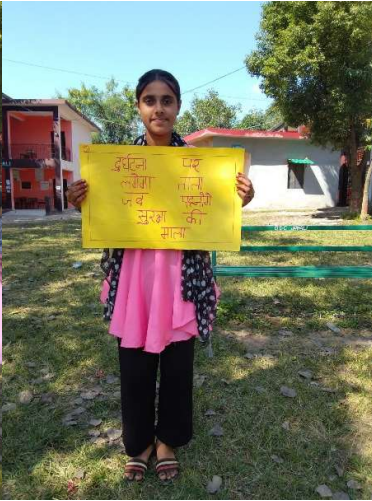 दुर्घटना पर
लगेगा ताला
जब पहनोगे
सुरक्षा की
माला